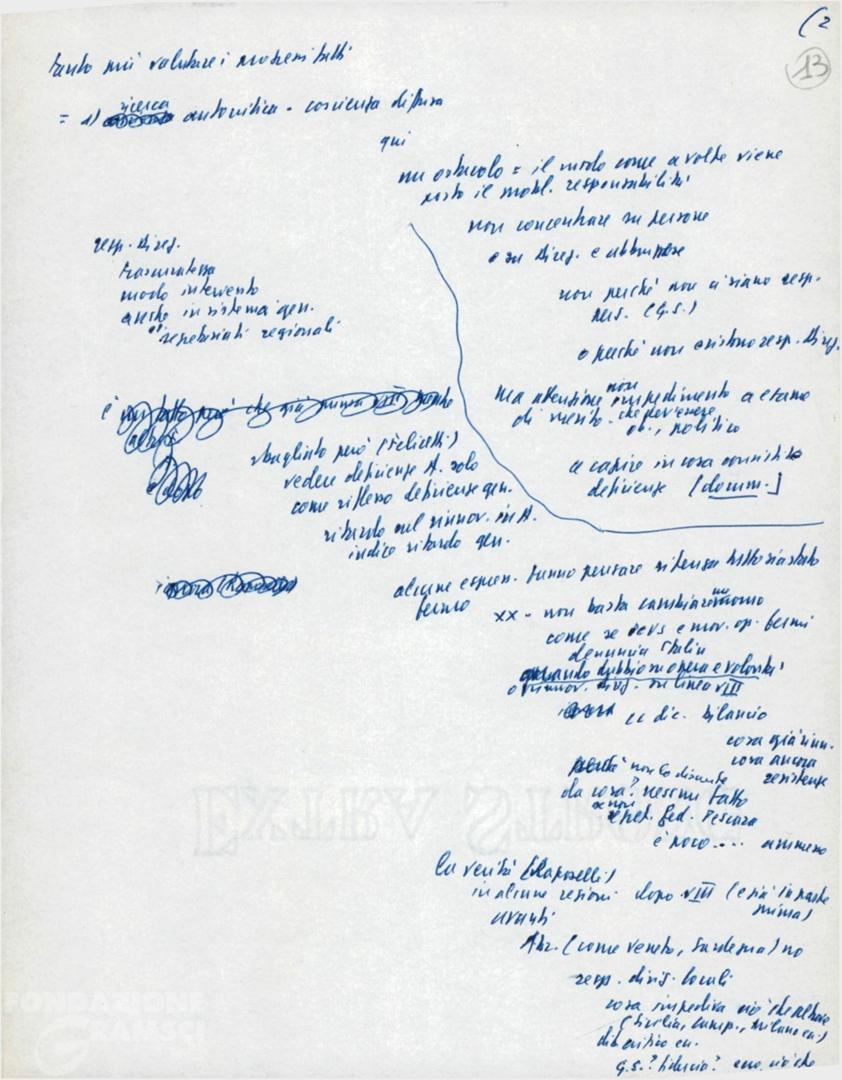 (2
13
tanto più valutare i problemi tutti
= 1) ricerca autocritica - coscienza diffusa
qui
un ostacolo = il modo come a volte viene
posto il probl. responsabilità
non concentrare su persone
o su Direz. e abbruzzese
non perché non ci siano resp.
pers. (G.S.)
o perché non esistono resp. direz.
ma attenzione non impedimento a esame
di merito - che dev'essere
ob., politico
e capire in cosa consistite
deficienze [domm.]
resp. direz.
trascuratezza
modo intervento
anche in sistema gen.
segretariati regionali
è
sbagliato però (Felicetti)
vedere deficienze A. solo
come riflesso deficienze gen.
ritardo nel rinnov. in A.
indice ritardo gen.
alcune espress. fanno pensare si pensa tutto sia stato
fermo
xx - non basta cambiare un uomo
come se PCUS e mov. op. fermi
denuncia Stalin
o rinnov. dirig. su linea VIII
CC dic. bilancio
cosa già rinn.
cosa ancora
resistenze
perché non lo
da cosa? nessun fatto
se non
Fed. Pescara
è poco.... nemmeno
la verità (Ciaposelli)
in alcune regioni dopo VIII (e già in parte
prima)
avanti
Abr. (come Veneto, Sardegna) no
resp. dirig. locali
cosa impediva ciò che altrove
(Sicilia, Camp., Milano ecc.)
dibattito cc.
G.S.? fiducia? ciò che
FONDAZIONE
GRAMSCI
EXTRA STRONG